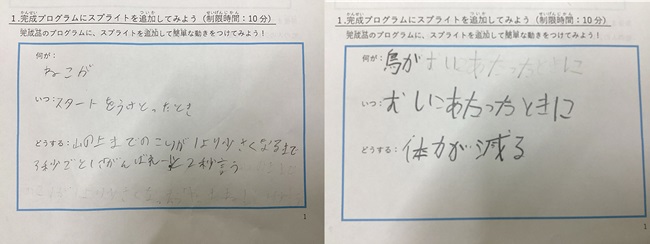 1.完成プログラムにスプライトを追加してみよう（制限時間：10分）
完成品のプログラムに、スプライトを追加して簡単な動きをつけてみよう！
何が：
ねこが
いつ：スタートをうけとったとき
どうする：山の上までのこりが1より小さくなるまで
2秒言う
1
1.完成プログラムにスプライトを追加してみよう（制限時間：10分）
完成品のプログラムに、スプライトを追加して簡単な動きをつけてみよう！
何が：鳥が
いつ：むしにあたったときに
どうする：体力が減る
1